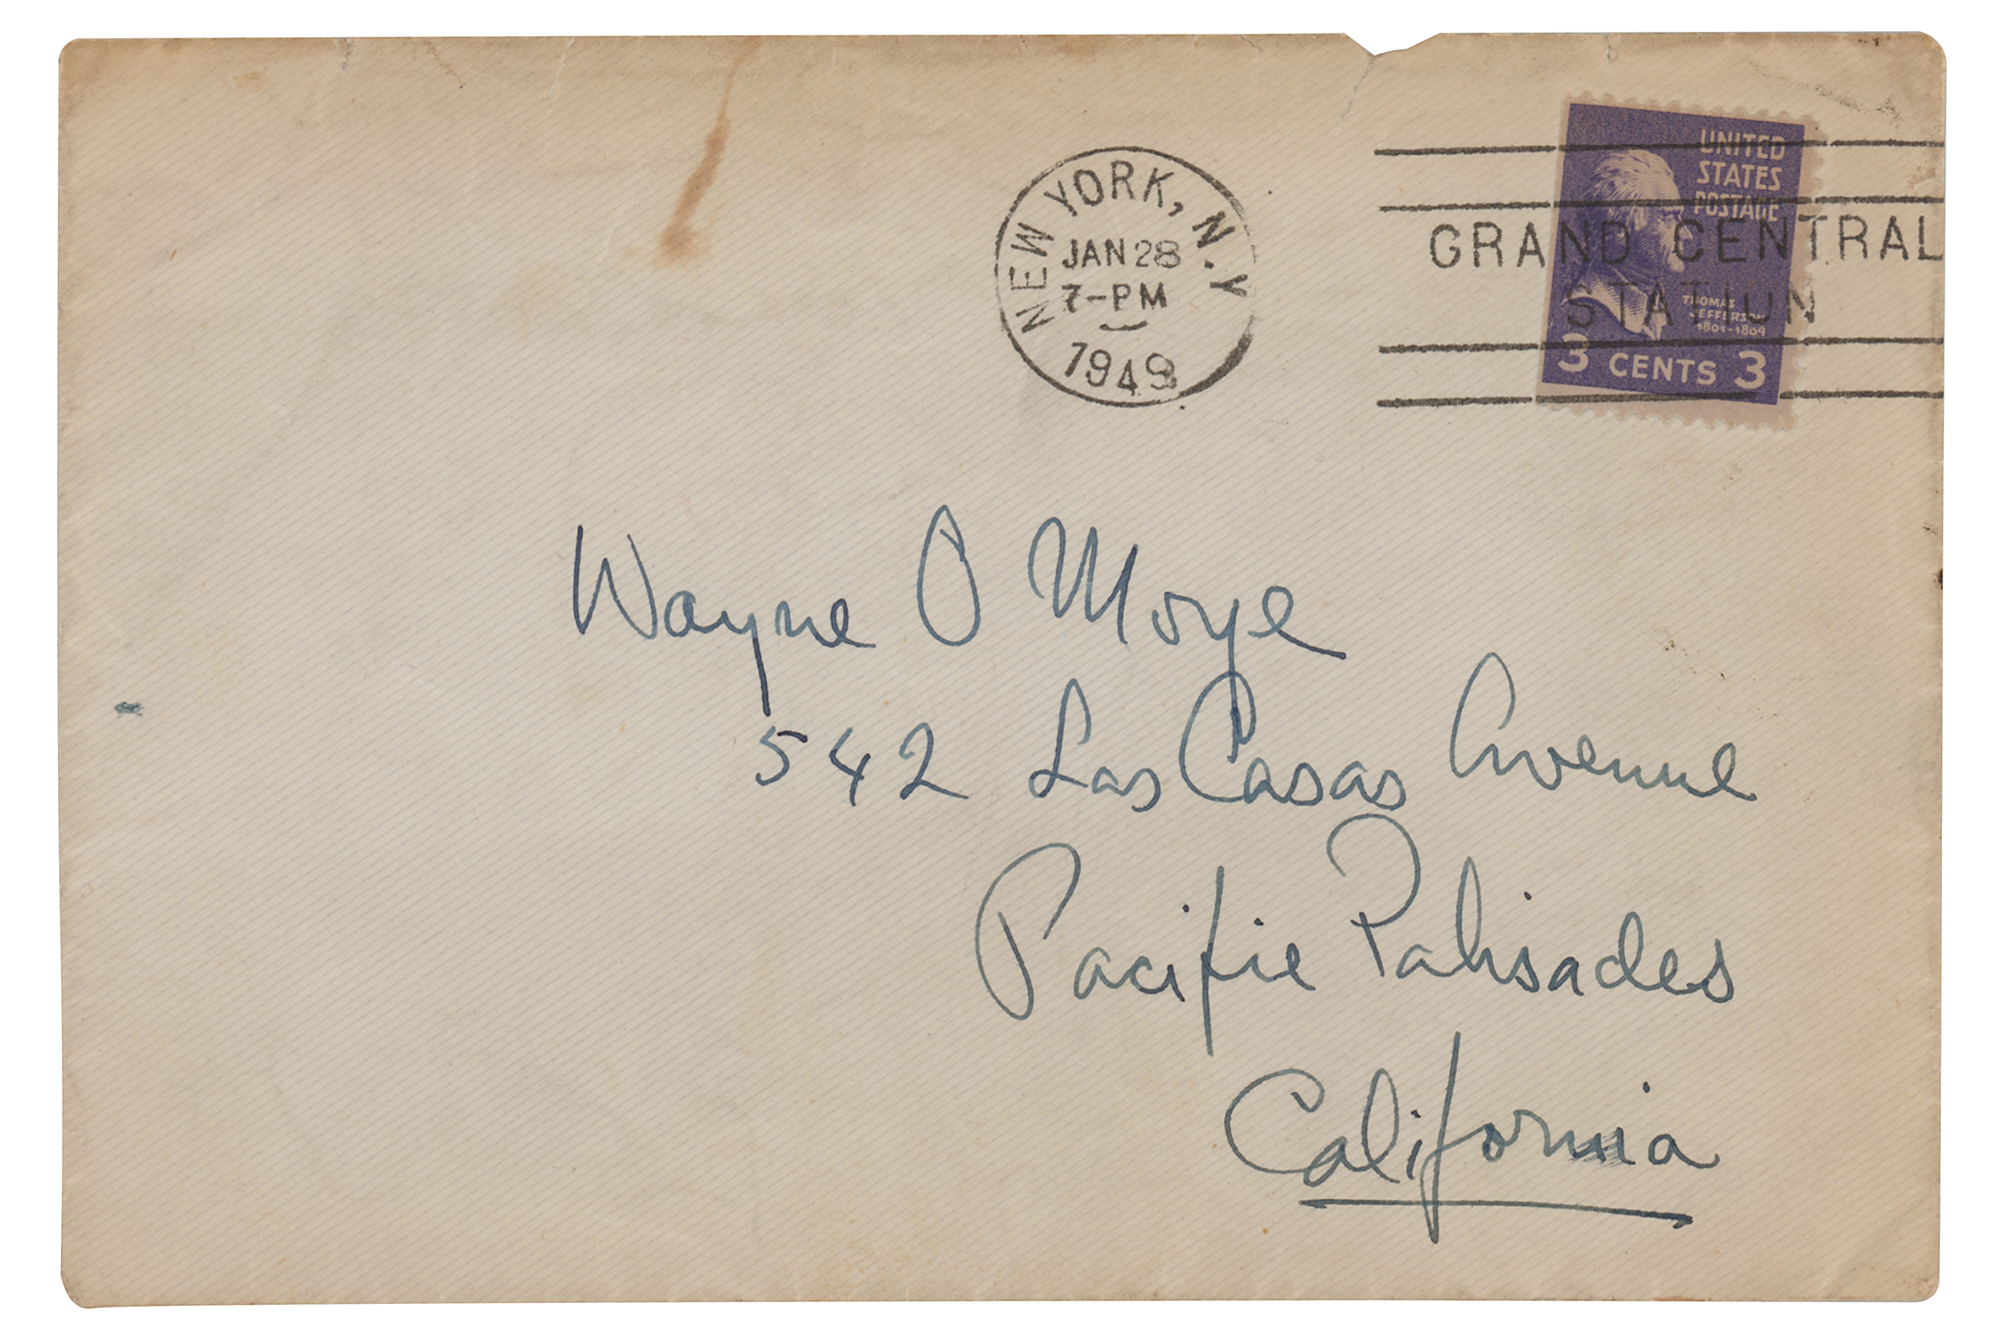 NEW YORK, N.Y
JAN 28
7-PM
1949
GRAND CENTRAL
STATION
UNITED
STATES
POSTAGE
THOMAS
JEFFERSON
1801-1809
3 CENTS 3
Wayne O Moye
542 Las Casas Avenue
Pacific Palisades
California